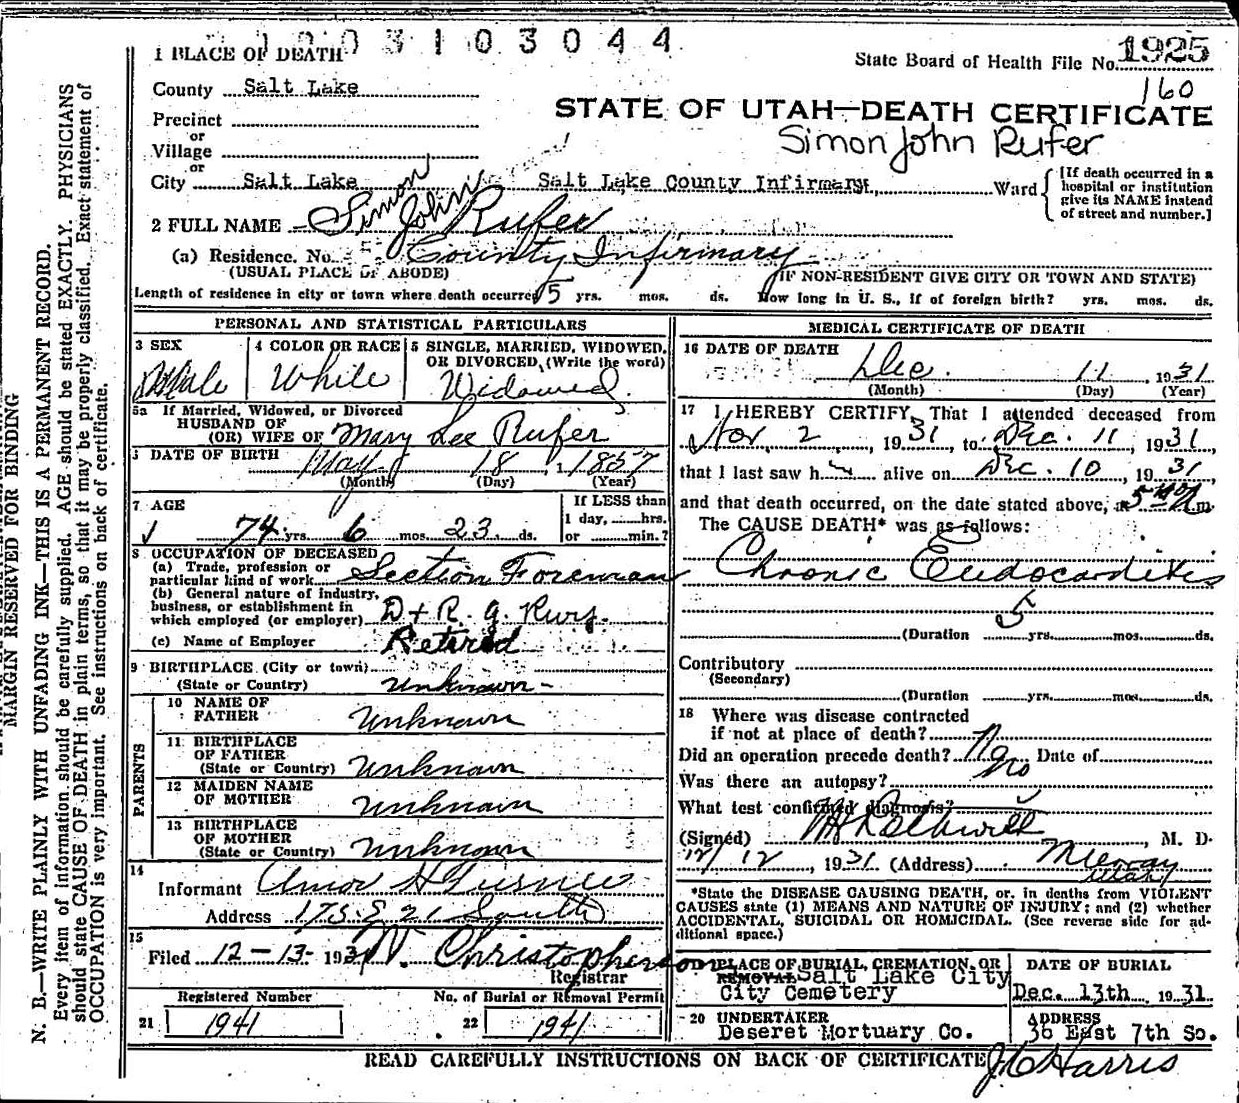 1 9 0 3 1 0 3 0 4 4
1 PLACE OF DEATH
State Board of Health File No. 1925
160
County Salt Lake
STATE OF UTAH—DEATH CERTIFICATE
Precinct
or
Simon John Rufer
Village
or
City Salt Lake Salt Lake County Infirmary, Ward
[If death occurred in a hospital or institution give its NAME instead of street and number.]
2 FULL NAME Simon John Rufer
(a) Residence. No. County Infirmary
(USUAL PLACE OF ABODE) (IF NON-RESIDENT GIVE CITY OR TOWN AND STATE)
Length of residence in city or town where death occurred 5 yrs. mos. ds. How long in U. S., if of foreign birth? yrs. mos. ds.
PERSONAL AND STATISTICAL PARTICULARS
3 SEX Male
4 COLOR OR RACE White
5 SINGLE, MARRIED, WIDOWED, OR DIVORCED, (Write the word)
Widowed
5a If Married, Widowed, or Divorced
HUSBAND OF
(OR) WIFE OF Mary Lee Rufer
DATE OF BIRTH May 18, 1857
(Month) (Day) (Year)
7 AGE
74 yrs 6 mos. 23 ds.
If LESS than
1 day, hrs.
or min.?
8 OCCUPATION OF DECEASED
(a) Trade, profession or
particular kind of work Section Foreman
(b) General nature of industry,
business, or establishment in
which employed (or employer) D + R. G. Rwy.
(c) Name of Employer Retired
9 BIRTHPLACE (City or town)
(State or Country) Unknown
PARENTS
10 NAME OF
FATHER Unknown
11 BIRTHPLACE
OF FATHER
(State or Country) Unknown
12 MAIDEN NAME
OF MOTHER Unknown
13 BIRTHPLACE
OF MOTHER
(State or Country) Unknown
14
Informant Amos H
Address 175 E 21 South
15
Filed 12-13-1931 W. Christopherson
Registrar
Registered Number
21 1941
No. of Burial or Removal Permit
22 1941
MEDICAL CERTIFICATE OF DEATH
16 DATE OF DEATH Dec. 11, 1931
(Month) (Day) (Year)
17 I HEREBY CERTIFY, That I attended deceased from
Nov 2, 1931, to Dec. 11, 1931,
that I last saw h alive on Dec. 10, 1931,
and that death occurred, on the date stated above, at m.
The CAUSE DEATH* was as follows:
Chronic Endocarditis
(Duration 5 yrs. mos. ds.
Contributory
(Secondary)
(Duration yrs. mos. ds.
18 Where was disease contracted
if not at place of death?
Did an operation precede death? No Date of
Was there an autopsy? No
What test confirmed diagnosis?
(Signed) M. D.
12/12, 1931 (Address) Murray
Utah
*State the DISEASE CAUSING DEATH, or, in deaths from VIOLENT
CAUSES state (1) MEANS AND NATURE OF INJURY; and (2) whether
ACCIDENTAL, SUICIDAL OR HOMICIDAL. (See reverse side for ad-
ditional space.)
PLACE OF BURIAL, CREMATION, OR
REMOVAL Salt Lake City
City Cemetery
DATE OF BURIAL
Dec. 13th, 1931.
20 UNDERTAKER
Deseret Mortuary Co.
ADDRESS
36 East 7th So.
READ CAREFULLY INSTRUCTIONS ON BACK OF CERTIFICATE
J C Harris
MARGIN RESERVED FOR BINDING
N. B.—WRITE PLAINLY WITH UNFADING INK—THIS IS A PERMANENT RECORD.
Every item of information should be carefully supplied. AGE should be stated EXACTLY. PHYSICIANS
should state CAUSE OF DEATH in plain terms, so that it may be properly classified. Exact statement of
OCCUPATION is very important. See instructions on back of certificate.